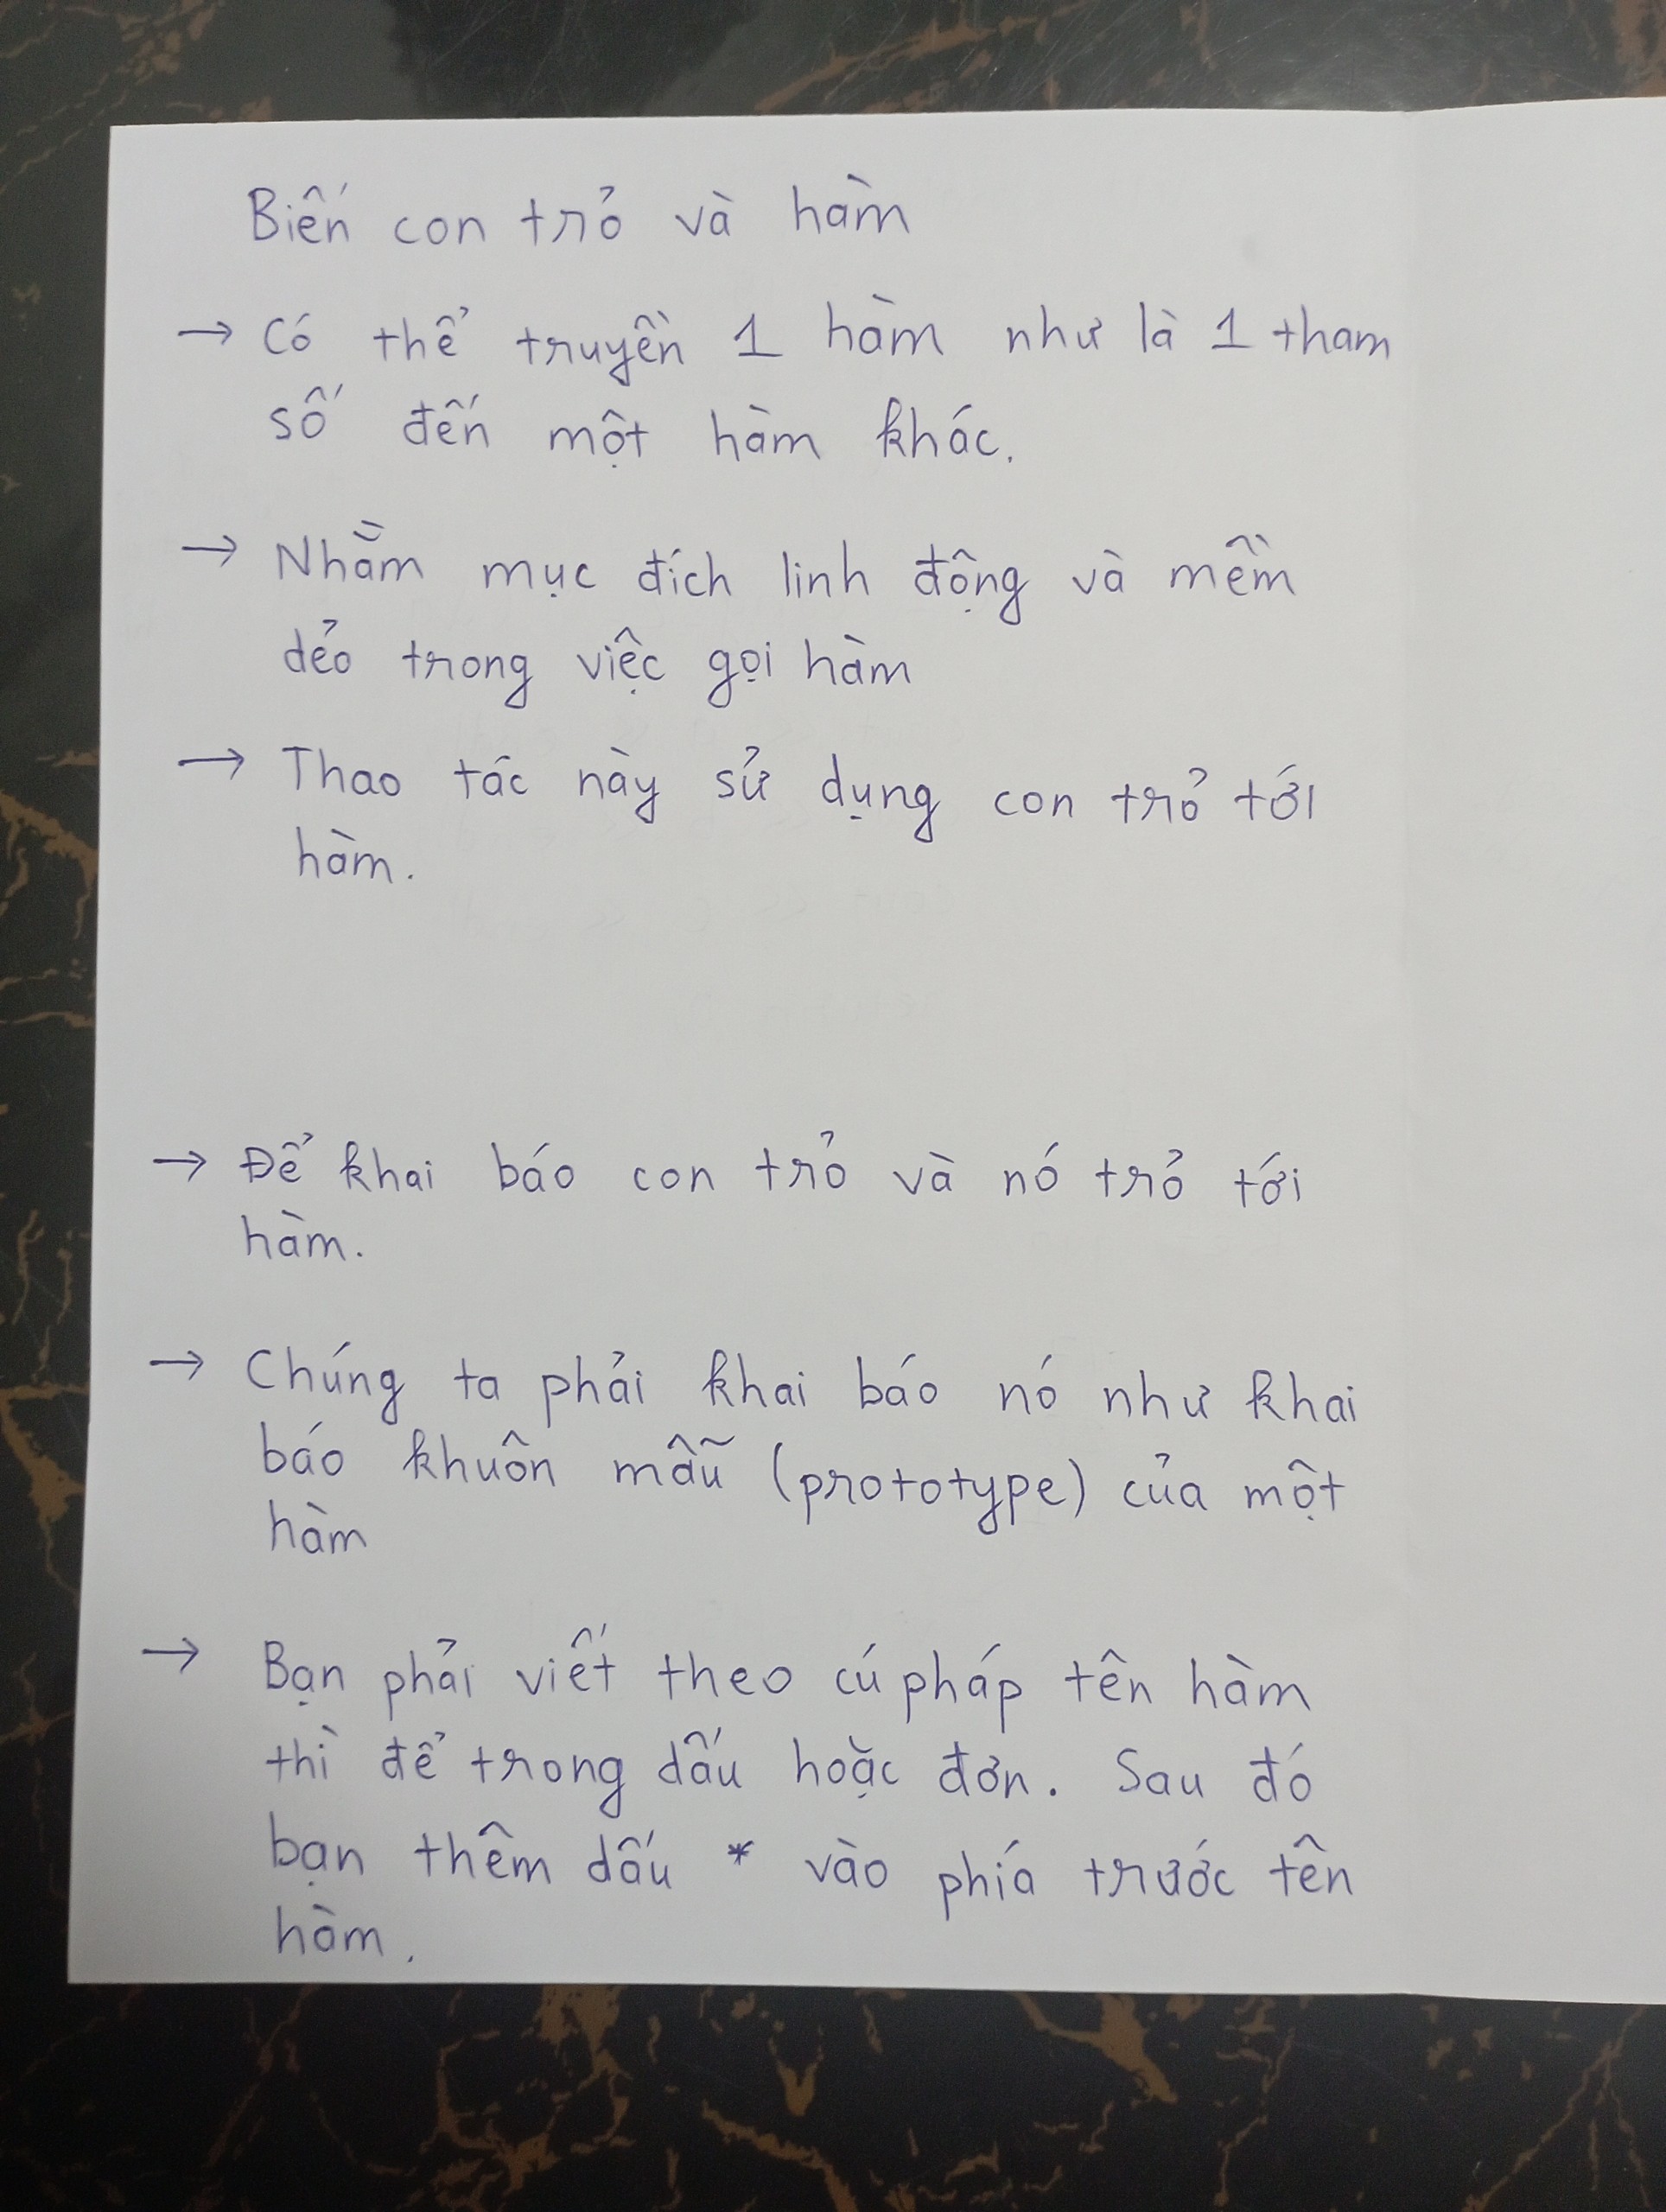 Biến con trỏ và hàm
→ Có thể truyền 1 hàm như là 1 tham
số đến một hàm khác.
→ Nhằm mục đích linh động và mềm
dẻo trong việc gọi hàm
→ Thao tác này sử dụng con trỏ tới
hàm.
→ Để khai báo con trỏ và nó trỏ tới
hàm.
→ Chúng ta phải khai báo nó như khai
báo khuôn mẫu (prototype) của một
hàm
→ Bạn phải viết theo cú pháp tên hàm
thì để trong dấu hoặc đơn. Sau đó
bạn thêm dấu * vào phía trước tên
hàm.